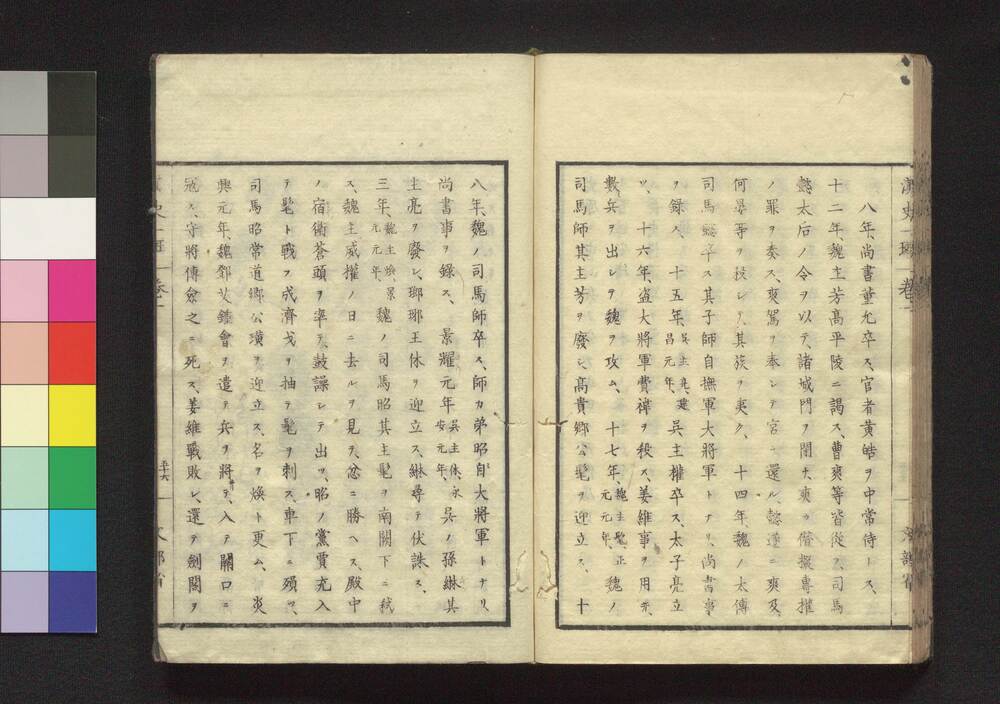 八年、尚書董允卒ス、宦者黄皓ヲ中常侍トス、
十二年、魏主芳高平陵ニ謁ス、曹爽等皆從フ、司馬
懿太后ノ令ヲ以テ、諸城門ヲ閉チ、爽ヵ僭擬專權
ノ罪ヲ奏ス、爽駕ヲ奉シテ宮ニ還ル、懿遂ニ爽及
何晏等ヲ殺シ、其族ヲ夷ク、十四年、魏ノ太傅
司馬懿卒ス、其子師自撫軍大將軍トナリ、尚書事
ヲ錄ス、十五年、吳主亮、建昌元年、吳主權卒ス、太子亮立
ツ、十六年、盗大將軍費禕ヲ殺ス、姜維事ヲ用ヰ、
數兵ヲ出シテ魏ヲ攻ム、十七年、魏主髦、正元元年、魏ノ
司馬師其主芳ヲ廢シ、高貴鄉公髦ヲ迎立ス、十
八年、魏ノ司馬師卒ス、師カ弟昭自大將軍トナリ、
尚書事ヲ錄ス、景耀元年、吳主休、永安元年、吳ノ孫綝其
主亮ヲ廢シ、瑯琊王休ヲ迎立ス、綝尋テ伏誅ス、
三年、魏主奐景元元年、魏ノ司馬昭其主髦ヲ南闕下ニ弑
ス、魏主威權ノ日ニ去ルヲ見テ、忿ニ勝ヘス、殿中
ノ宿衛蒼頭ヲ率テ、鼓譟シテ出ツ、昭ノ黨賈充入
テ髦ト戰フ、成濟戈ヲ抽テ髦ヲ刺ス、車下ニ殞ツ、
司馬昭常道鄉公璜ヲ迎立ス、名ヲ煥ト更ム、炎
興元年、魏鄧艾鍾會ヲ遣テ兵ヲ將ヰテ、入テ關口ニ
寇ス、守將傅僉之ニ死ス、姜維戰敗レ、還テ劍閣ヲ
漢史一斑 卷一
五十六
文部省